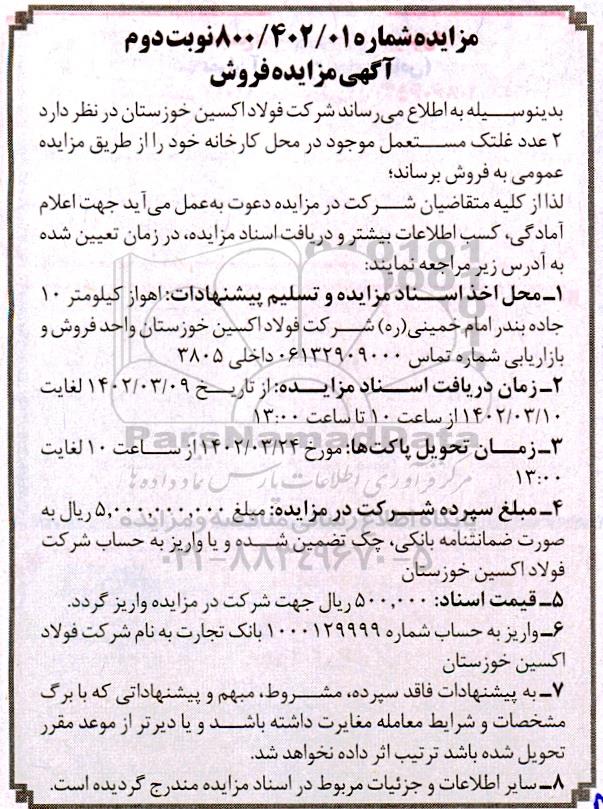 مزایده شماره ۸۰۰/۴۰۲/۰۱ نوبت دوم
آگهی مزایده فروش
بدینوسیله به اطلاع می‌رساند شرکت فولاد اکسین خوزستان در نظر دارد
۲ عدد غلتک مستعمل موجود در محل کارخانه خود را از طریق مزایده
عمومی به فروش برساند؛
لذا از کلیه متقاضیان شرکت در مزایده دعوت به‌عمل می‌آید جهت اعلام
آمادگی، کسب اطلاعات بیشتر و دریافت اسناد مزایده، در زمان تعیین شده
به آدرس زیر مراجعه نمایند:
۱ـ محل اخذ اسناد مزایده و تسلیم پیشنهادات: اهواز کیلومتر ۱۰
جاده بندر امام خمینی(ره) شرکت فولاد اکسین خوزستان واحد فروش و
بازاریابی شماره تماس ۰۶۱۳۲۹۰۹۰۰۰ داخلی ۳۸۰۵
۲ـ زمان دریافت اسناد مزایده: از تاریخ ۱۴۰۲/۰۳/۰۹ لغایت
۱۴۰۲/۰۳/۱۰ از ساعت ۱۰ تا ساعت ۱۳:۰۰
۳ـ زمان تحویل پاکت‌ها: مورخ ۱۴۰۲/۰۳/۲۴ از ساعت ۱۰ لغایت
۱۳:۰۰
ParsNamadData
مرکز فرآوری اطلاعات پارس نماد داده‌ها
۴ـ مبلغ سپرده شرکت در مزایده: مبلغ ۵,۰۰۰,۰۰۰,۰۰۰ ریال به
پایگاه اطلاع رسانی مناقصه و مزایده
صورت ضمانتنامه بانکی، چک تضمین شده و یا واریز به حساب شرکت
۰۲۱-۸۸۳۴۹۶۷۰-۵
فولاد اکسین خوزستان
۵ـ قیمت اسناد: ۵۰۰,۰۰۰ ریال جهت شرکت در مزایده واریز گردد.
۶ـ واریز به حساب شماره ۱۰۰۰۱۲۹۹۹۹ بانک تجارت به نام شرکت فولاد
اکسین خوزستان
۷ـ به پیشنهادات فاقد سپرده، مشروط، مبهم و پیشنهاداتی که با برگ
مشخصات و شرایط معامله مغایرت داشته باشد و یا دیرتر از موعد مقرر
تحویل شده باشد ترتیب اثر داده نخواهد شد.
۸ـ سایر اطلاعات و جزئیات مربوط در اسناد مزایده مندرج گردیده است.